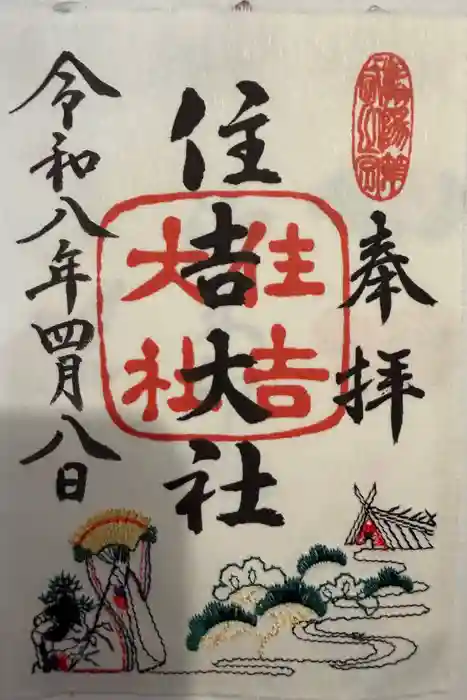 奉拝
住吉大社
住吉大社
令和八年四月八日